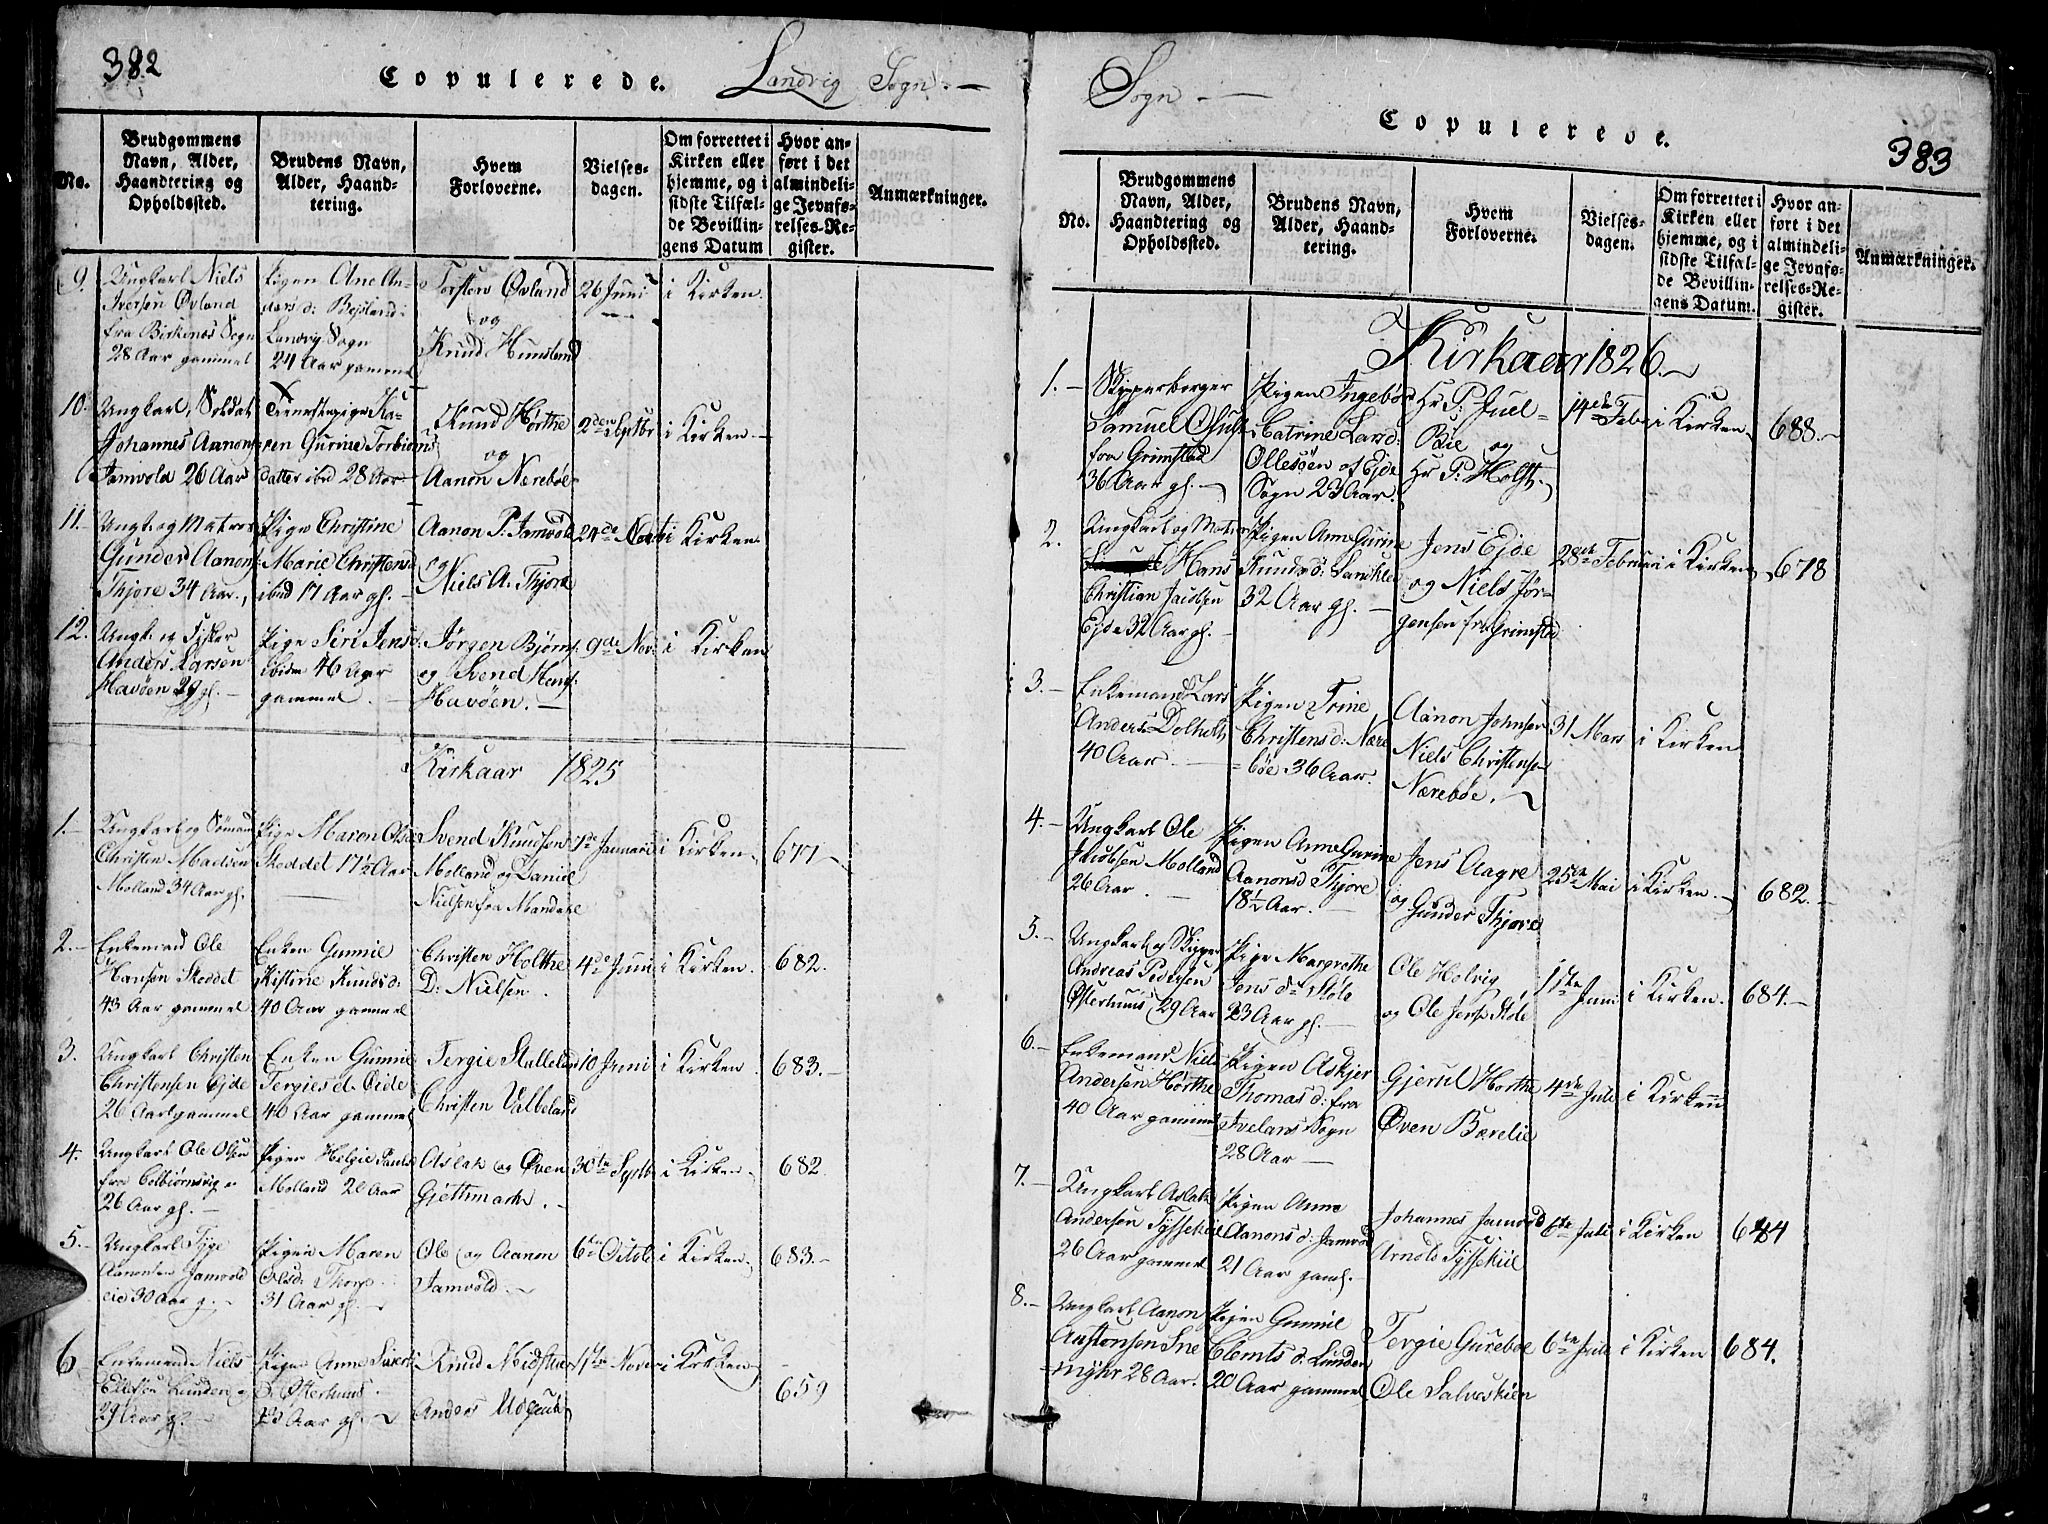 382
Copulerede. Landvig Sogn.
No.
Brudgommens
Navn, Alder,
Haandtering og
Opholdssted.
Brudens Navn,
Alder, Haand-
tering.
Hvem
Forloverne.
Vielses-
dagen.
Om forrettet i
Kirken eller
hjemme, og i
sidste Tilfæl-
de Bevillin-
gens Datum
Hvor an-
ført i det
almindeli-
ge Jevnfø-
relses-Re-
gister.
Anmærkninger.
9.
Ungkarl Niels
Iversen Øvland
fra Birkenes Sogn
28 Aar gammel
Pigen Ane An-
ders d: Bejsland
Landvig Sogn
24 Aar gammel
Torsten Øvland
og
Knud Hunsland
26 Juni
i Kirken.
10.
Ungkarl, Soldat
Johannes Aanons
Jamvold 26 Aar
Tienestepige Ka-
ren Gurine Torbiørns
datter ibid 28 Aar
Knud Hørthe
og
Aanon Nerebøe
2den Septbr
i Kirken
11.
Ungk. og Matros
Gunder Aanons
Thjore 34 Aar.
Pige Christine
Marie Christens
ibid 17 Aar gl.
Aanon P. Jamvold
og
Niels A. Thjore
24de
i Kirken
12.
Ungk. og Fisker
Anders Larsen
Havøen 29 gl.
Pige Siri Jens
ibidm 46 Aar
gammel.
Jørgen Bjørn
og Svend
Havøen.
9de Nov.
i Kirken
Kirkaar 1825
1.
Ungkarl og Sømand
Christen Madsen
Molland 34 Aar gl.
Pige Maren Olsd
Skeddet 17½ Aar
Svend Knudsen
Molland og Daniel
Nielsen fra Mandahl
7de Januari
i Kirken
677
2.
Enkemand Ole
Hansen Skeddet
43 Aar gammel
Enken Gunnil
Kistine Knudsd:
40 Aar gammel
Christen Holthe
D: Nielsen.
4de Juni
i Kirken.
682.
3.
Ungkarl Christen
Christensen Ejde
26 Aar gammel
Enken Gunnil
Tergies d. Eide
40 Aar gammel
Tergie Stalleland
Christen Valbeland
10 Juni
i Kirken
683.
4.
Ungkarl Ole Olsen
fra Colbiørnsvig
26 Aar gl.
Pigen Helgie Pauls
Molland 20 Aar
Aslak og Øven
Gjethmark.
30te Septb
i Kirken
682
5.
Ungkarl Tyge
Aanonsen Jamvold
eie 30 Aar g.
Pigen Maren
Olsd: Thore
31 Aar gl.
Ole og Aanon
Jamvold.
6te Octob
i Kirken
683.
6
Enkemand Niels
Ellefsen Lunden
29 Aar gl.
Pigen Anne Sivert
d. Østerhuus
23 Aar gl.
Knud Midstue
Anders
17de Nover
i Kirken
659
Sogn.
Copulerede.
383
No.
Brudgommens
Navn, Alder,
Haandtering og
Opholdssted.
Brudens Navn,
Alder, Haand-
tering.
Hvem
Forloverne.
Vielses-
dagen.
Om forrettet i
Kirken eller
hjemme, og i
sidste Tilfæl-
de Bevillin-
gens Datum.
Hvor an-
ført i det
almindeli-
ge Jevnfø-
relses-Re-
gister.
Anmærkninger.
Kirkaar 1826.
1.
Skipperborger
Samuel
fra Grimstad
36 Aar gl.
Pigen Ingebør
Catrine Lassd:
Ollesøen af Ejde
Sogn 23 Aar.
Hr P: Juel
Bie og
Hr P: Holst.
14de Feb
i Kirken
688.
2.
Ungkarl og Matros
Hans
Christian Jacobsen
Ejde 32 Aar gl.
Pigen Anne Gurine
Knudsd: Landkle
32 Aar gl.
Jens Ejde
og Niels Jør-
gensen fra Grimstad
28de Februari
i Kirken
678
3.
Enkemand Lars
Anders Dolholt
40 Aar.
Pigen Trine
Christens d: Nære
bøe 36 Aar.
Aanon Johnsen
Niels Christensen
Nærebøe.
31 Mars
i Kirken
4.
Ungkarl Ole
Jacobsen Molland
26 Aar.
Pigen Anne Gurine
Aanonsd Thjore
18½ Aar.
Jens Aagre
og
Gunder Thjore
25de Mai
i Kirken.
682.
5.
Ungkarl og Skipper
Andreas Pedersen
Østerhuus 29 Aar
Pige Margrethe
Jens d. Støle
23 Aar gl.
Ole Holvig
og Ole Jens Støle
1ste Juni
i Kirken.
684.
6.
Enkemand Niels
Andersen Hørthe
40 Aar gammel
Pigen Askjer
Thomas d: fra
Ivelans Sogn
28 Aar
Gjerul Horthe
Øven Bærelie
4de Juli
i Kirken
7.
Ungkarl Aslak
Andersen Tyssekiil
26 Aar gammel
Pigen Anne
Aanons d: Jamvold
21 Aar gaml.
Johannes Jamvold
Arnold Tyssekiil
6te Juli
i Kirken
684
8.
Ungkarl Aanon
Austensen Sne
myhr 28 Aar.
Pigen Gunnil
Clemts d: Lunden
20 Aar gammel
Tergie Gurebøe
Ole Salveskien
6te Juli
i Kirken
684.